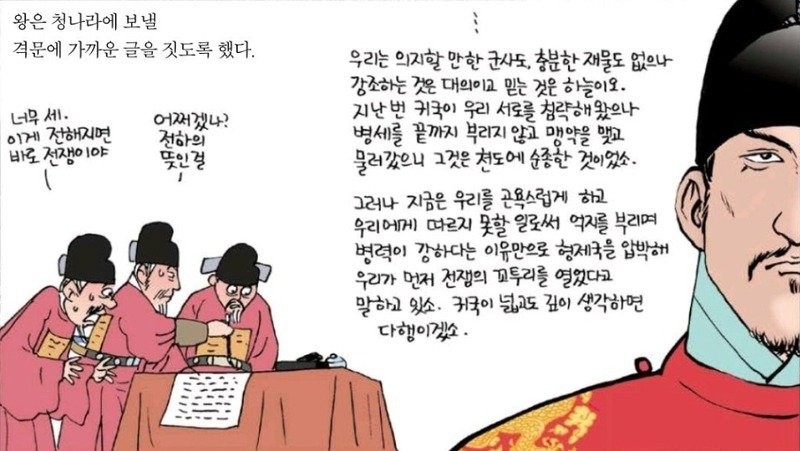 왕은 청나라에 보낼
격문에 가까운 글을 짓도록 했다.
너무 세.
이게 전해지면
바로 전쟁이야
어쩌겠나?
전하의
뜻인걸
우리는 의지할 만한 군사도, 충분한 재물도 없으나
강조하는 것은 대의이고 믿는 것은 하늘이오.
지난 번 귀국이 우리 서로를 침략해 왔으나
병세를 끝까지 부리지 않고 맹약을 맺고
물러갔으니 그것은 천도에 순종한 것이었소.
그러나 지금은 우리를 곤욕스럽게 하고
우리에게 따르지 못할 일로써 억지를 부리며
병력이 강하다는 이유만으로 형제국을 압박해
우리가 먼저 전쟁의 꼬투리를 열었다고
말하고 있소. 귀국이 넓고도 깊이 생각하면
다행이겠소.